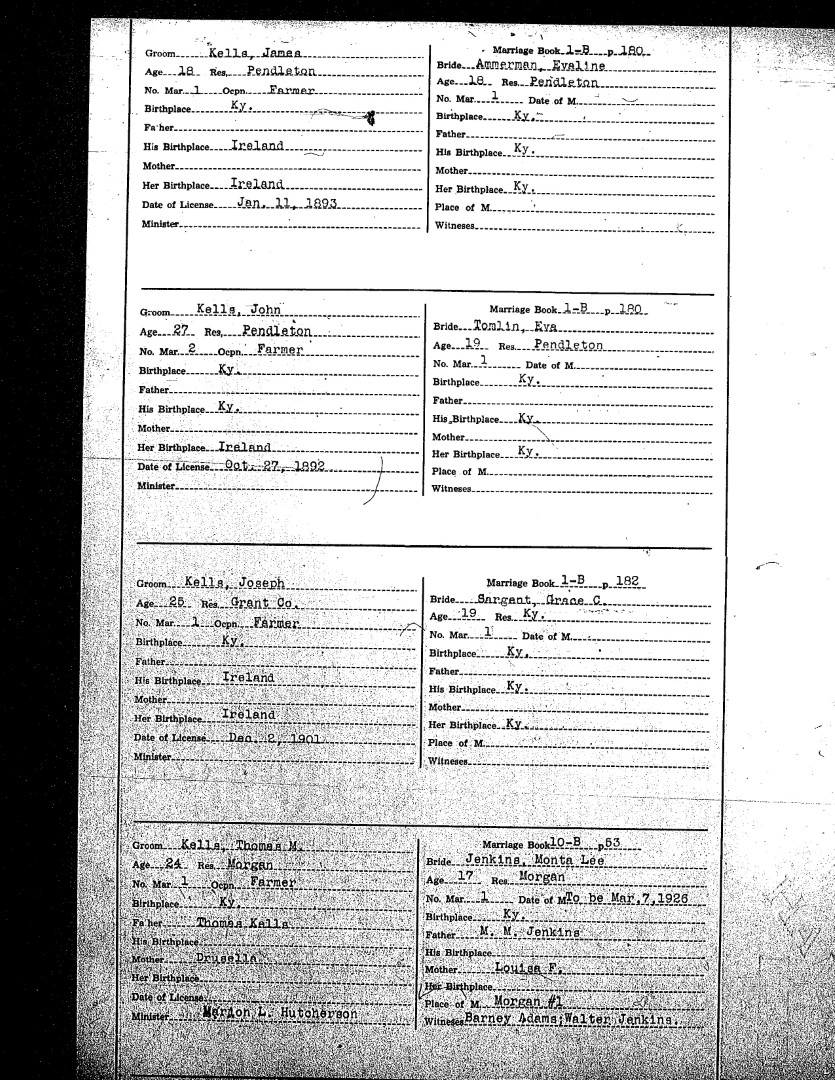 Groom Kells, James
Age 18 Res. Pendleton
No. Mar. 1 Ocpn. Farmer
Birthplace Ky.
Father
His Birthplace Ireland
Mother
Her Birthplace Ireland
Date of License Jan. 11, 1893
Minister
Marriage Book 1-B p. 180
Bride Ammerman, Evaline
Age 18 Res. Pendleton
No. Mar. 1 Date of M.
Birthplace Ky.
Father
His Birthplace Ky.
Mother
Her Birthplace Ky.
Place of M.
Witneses
Groom Kells, John
Age 27 Res. Pendleton
No. Mar. 2 Ocpn. Farmer
Birthplace Ky.
Father
His Birthplace Ky.
Mother
Her Birthplace Ireland
Date of License Oct. 27, 1892
Minister
Marriage Book 1-B p. 180
Bride Tomlin, Eva
Age 19 Res. Pendleton
No. Mar. 1 Date of M.
Birthplace Ky.
Father
His Birthplace Ky.
Mother
Her Birthplace Ky.
Place of M.
Witneses
Groom Kells, Joseph
Age 25 Res. Grant Co.
No. Mar. 1 Ocpn. Farmer
Birthplace Ky.
Father
His Birthplace Ireland
Mother
Her Birthplace Ireland
Date of License Dec. 2, 1901
Minister
Marriage Book 1-B p. 182
Bride Sargent, Grace C.
Age 19 Res. Ky.
No. Mar. 1 Date of M.
Birthplace Ky.
Father
His Birthplace Ky.
Mother
Her Birthplace Ky.
Place of M.
Witneses
Groom Kells, Thomas M.
Age 24 Res. Morgan
No. Mar. 1 Ocpn. Farmer
Birthplace Ky.
Father Thomas Kells
His Birthplace
Mother Drusella
Her Birthplace
Date of License
Minister Marion L. Hutcherson
Marriage Book 10-B p53
Bride Jenkins, Monta Lee
Age 17 Res. Morgan
No. Mar. 1 Date of M To be Mar.7,1926
Birthplace Ky.
Father M. M. Jenkins
His Birthplace
Mother Louisa F.
Her Birthplace
Place of M. Morgan #1
Witneses Barney Adams;Walter Jenkins.